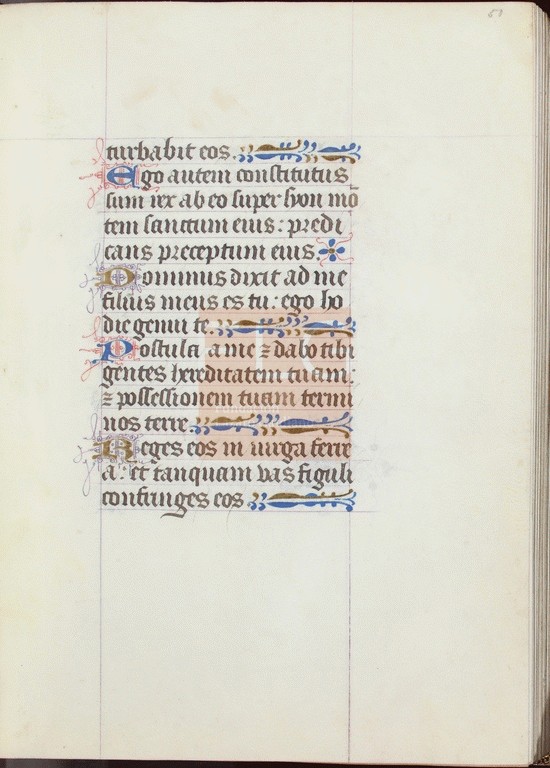 61
turbabit eos.
Ego autem constitutus
sum rex ab eo super syon mō
tem sanctum eius: predi
cans preceptum eius.
Dominus dixit ad me
filius meus es tu: ego ho
die genui te.
Postula a me ⁊ dabo tibi
gentes hereditatem tuam:
⁊ possessionem tuam termi
nos terre.
Reges eos in uirga ferre
a: et tanquam vas figuli
confringes eos